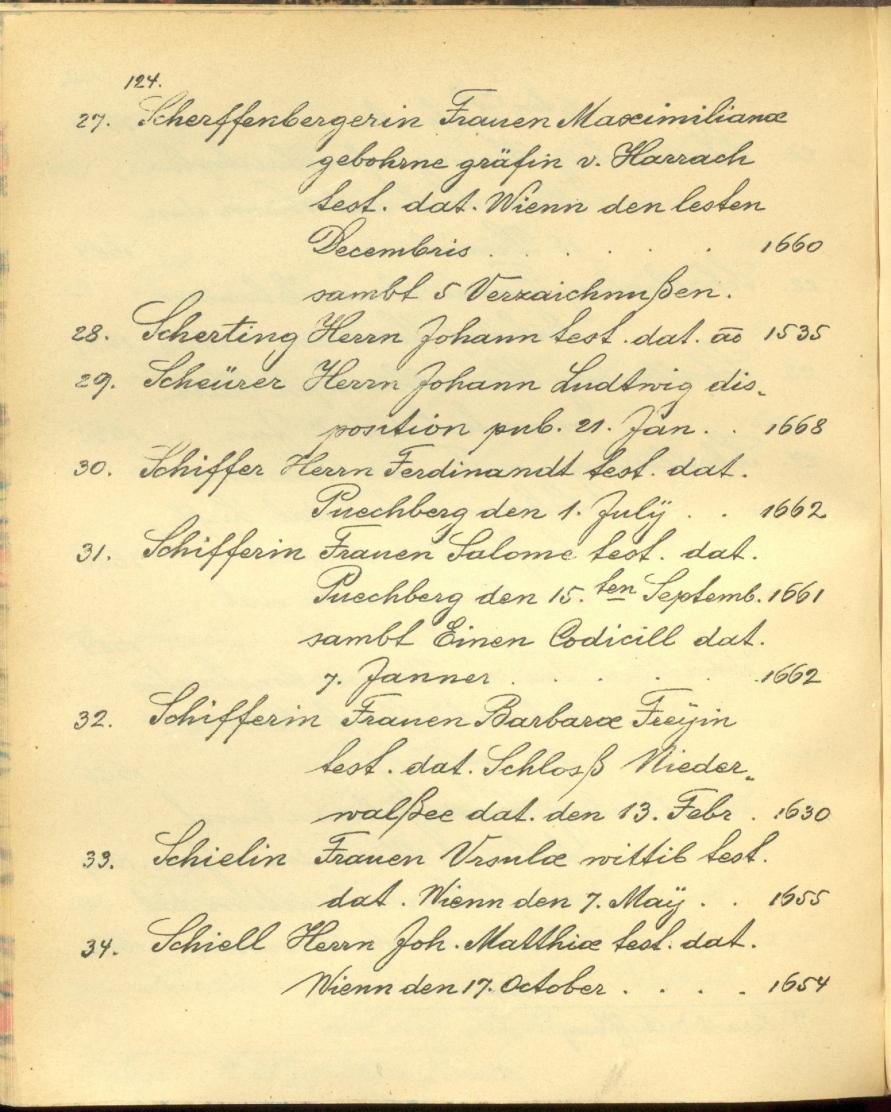 124.
27. Scherffenbergerin Frauen Maximilianæ
gebohrne gräfin v. Harrach
test. dat. Wienn den lesten
Decembris . . . . . 1660
sambt 5 Verzaichnußen.
28. Scherting Herrn Johann test. dat. a͞o 1535
29. Scheürer Herrn Johann Ludtwig dis„
position pub. 21. Jän. . 1668
30. Schiffer Herrn Ferdinandt test. dat.
Puechberg den 1. Julÿ . . 1662
31. Schifferin Frauen Salome test. dat.
Puechberg den 15. ten Septemb. 1661
sambt Einen Codicill dat.
7. Janner . . . . . 1662
32. Schifferin Frauen Barbaræ Freÿin
test. dat. Schlosß Nieder„
walßee dat. den 13. Febr . 1630
33. Schielin Frauen Vrsulæ wittib test.
dat. Wienn den 7. Maÿ . . 1655
34. Schiell Herrn Joh. Matthiæ test. dat.
Wienn den 17. October . . . . 1654